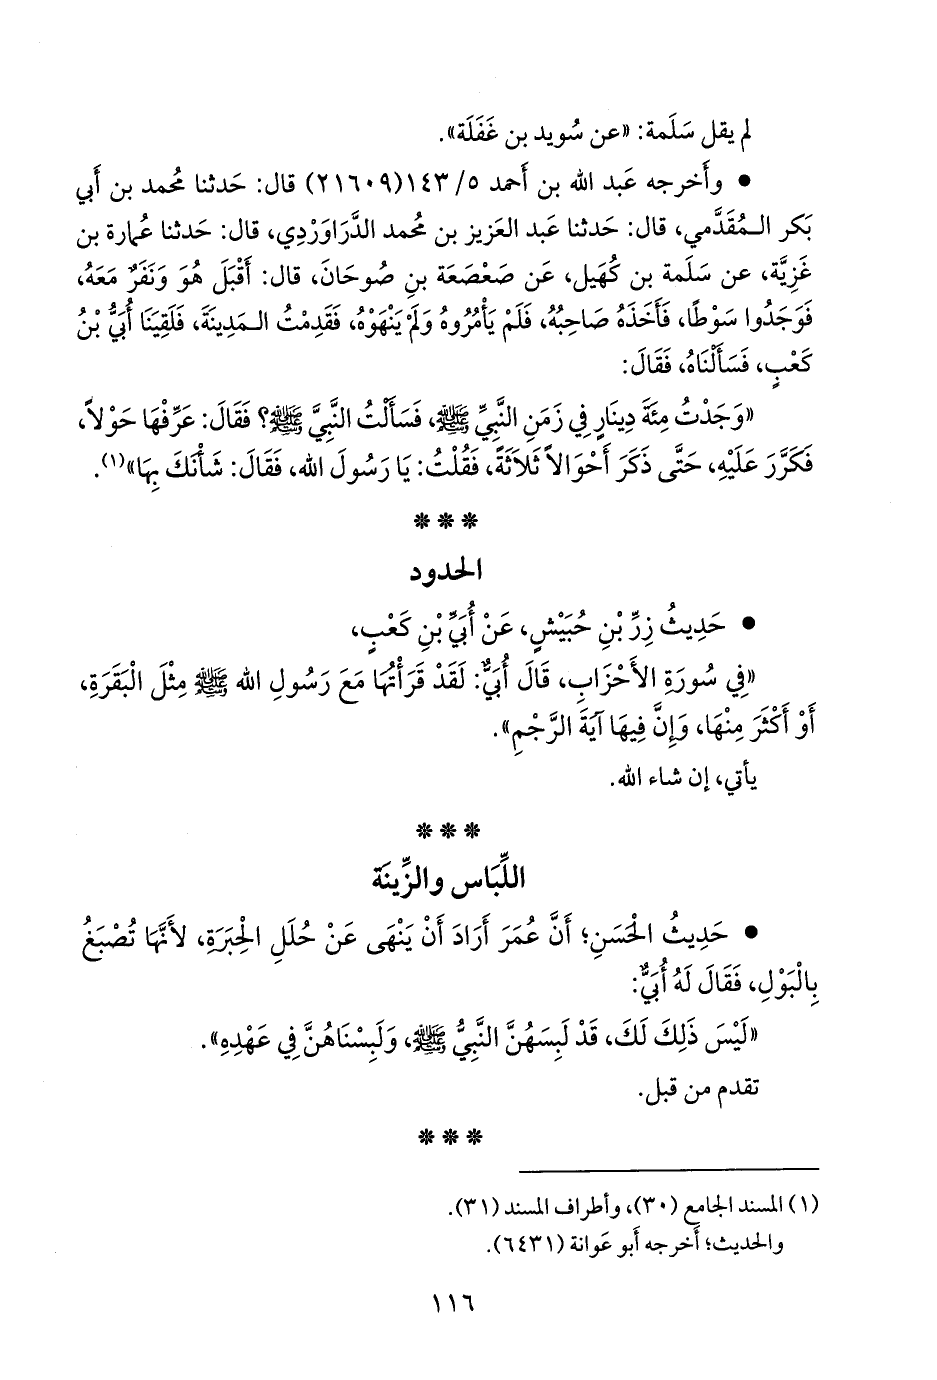 لم يقل سَلَمة: «عن سُويد بن غَفَلَة».
● وأَخرجه عَبد الله بن أَحمد ٥/ ١٤٣(٢١٦٠٩) قال: حَدثنا مُحمد بن أَبي
بَكر الـمُقَدَّمي، قال: حَدثنا عَبد العَزيز بن مُحمد الدَّرَاوَرْدِي، قال: حَدثنا عُمارة بن
غَزِيَّة، عن سَلَمة بن كُهَيل، عَن صَعْصَعَة بنِ صُوحَانَ، قال: أَقْبَلَ هُوَ وَنَفَرٌ مَعَهُ،
فَوَجَدُوا سَوْطًا، فَأَخَذَهُ صَاحِبُهُ، فَلَمْ يَأْمُرُوهُ وَلَمْ يَنْهَوْهُ، فَقَدِمْتُ الـمَدِينَةَ، فَلَقِيَنَا أُبَيُّ بْنُ
كَعْبٍ، فَسَأَلْنَاهُ، فَقَالَ:
«وَجَدْتُ مِئَةَ دِينَارٍ فِي زَمَنِ النَّبِيِّ ﷺ، فَسَأَلْتُ النَّبِيَّ ﷺ؟ فَقَالَ: عَرِّفْهَا حَوْلاً،
فَكَرَّرَ عَلَيْهِ، حَتَّى ذَكَرَ أَحْوَالاً ثَلَاثَةً، فَقُلْتُ: يَا رَسُولَ الله، فَقَالَ: شَأْنَكَ بِهَا»(١).
* * *
الحدود
● حَدِيثُ زِرِّ بْنِ حُبَيْشٍ، عَنْ أُبَيِّ بْنِ كَعْبٍ،
«فِي سُورَةِ الأَحْزَابِ، قَالَ أُبَيٌّ: لَقَدْ قَرَأْتُهَا مَعَ رَسُولِ الله ﷺ مِثْلَ الْبَقَرَةِ،
أَوْ أَكْثَرَ مِنْهَا، وَإِنَّ فِيهَا آيَةَ الرَّجْمِ».
يأتي، إن شاء الله.
* * *
اللِّبَاس والزِّينَة
● حَدِيثُ الْحَسَنِ؛ أَنَّ عُمَرَ أَرَادَ أَنْ يَنْهَى عَنْ حُلَلِ الْحِبَرَةِ، لأَنَّهَا تُصْبَغُ
بِالْبَوْلِ، فَقَالَ لَهُ أُبَيٌّ:
«لَيْسَ ذَلِكَ لَكَ، قَدْ لَبِسَهُنَّ النَّبِيُّ ﷺ، وَلَبِسْنَاهُنَّ فِي عَهْدِهِ».
تقدم من قبل.
* * *
(١) المسند الجامع (٣٠)، وأطراف المسند (٣١).
والحديث؛ أَخرجه أَبو عَوانة (٦٤٣١).
١١٦